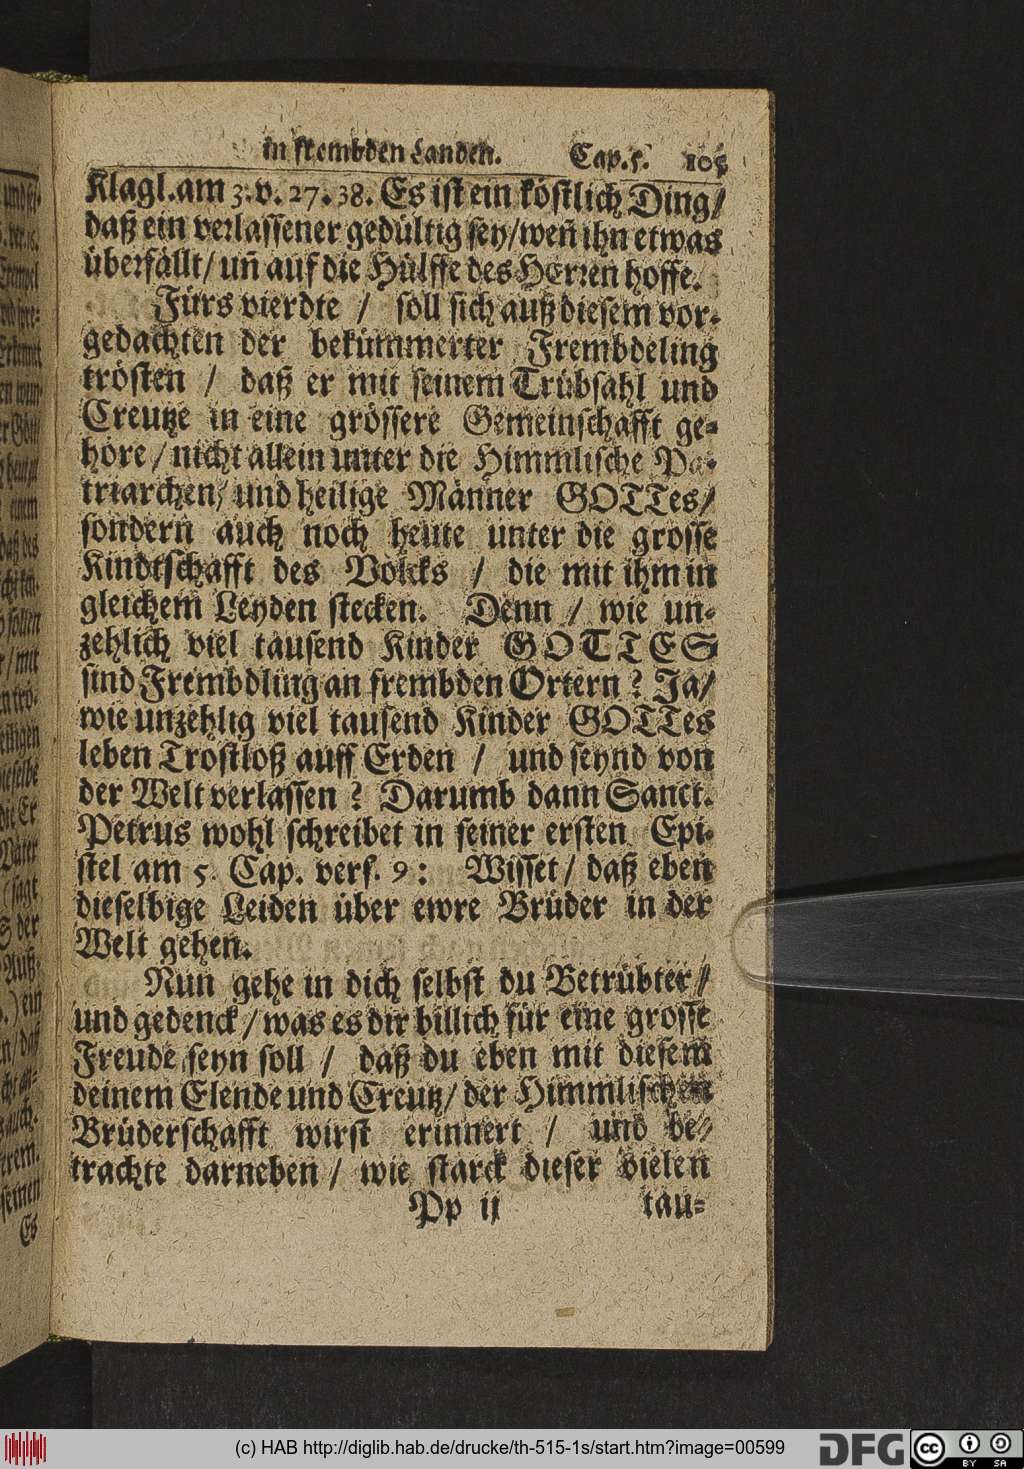 in frembden Landen. Cap. 5. 105
Klagl. am 3. v. 27. 38. Es ist ein köstlich Ding/
daß ein verlassener gedültig sey/ wen̄ ihn etwas
überfällt/ un̄ auf die Hülffe des HErren hoffe.
Fürs vierdte / soll sich auß diesem vor-
gedachten der bekümmerter Frembdeling
trösten / daß er mit seinem Trübsahl und
Creutze in eine grössere Gemeinschafft ge-
höre / nicht allein unter die Himmlische Pa-
triarchen/ und heilige Männer GOTTes/
sondern auch noch heute unter die grosse
Kindtschafft des Volcks / die mit ihm in
gleichem Leyden stecken. Denn / wie un-
zehlich viel tausend Kinder GOTTES
sind Frembdling an frembden Ortern? Ja/
wie unzehlig viel tausend Kinder GOTTes
leben Trostloß auff Erden / und seynd von
der Welt verlassen? Darumb dann Sanct.
Petrus wohl schreibet in seiner ersten Epi-
stel am 5. Cap. vers. 9: Wisset / daß eben
dieselbige Leiden über ewre Brüder in der
Welt gehen.
Nun gehe in dich selbst du Betrübter/
und gedenck / was es dir billich für eine grosse
Freude seyn soll / daß du eben mit diesem
deinem Elende und Creutz/ der Himmlischen
Brüderschafft wirst erinnert / und be-
trachte darneben / wie starck dieser vielen
Pp ij tau-
(c) HAB http://diglib.hab.de/drucke/th-515-1s/start.htm?image=00599
DFG
cc BY SA